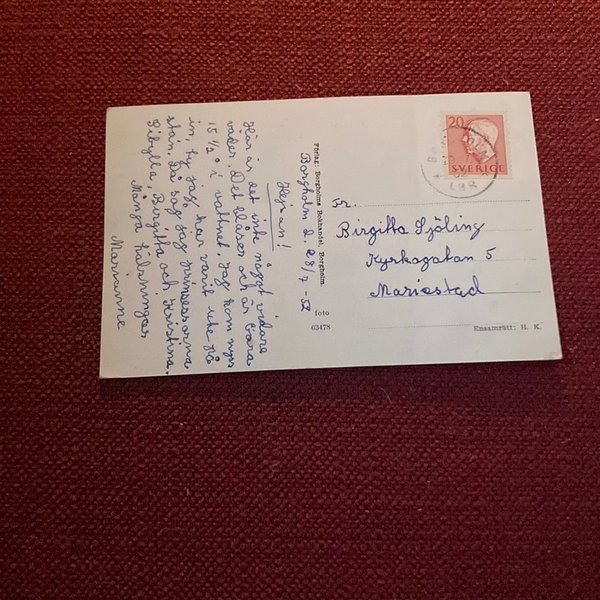 Borgholm d. 28/7 -52
Hejsan!
Här är det inte något vidare
väder. Det blåser och är bara
15 1/2° i vattnet. Jag kom nyss
in, ty jag har varit ute på
stan. Då såg jag prinsessorna
Sibylla, Birgitta och Kristina.
Många hälsningar
Marianne
Förlag: Borgholms Bokhandel, Borgholm.
foto
63478
20
SVERIGE
Fr.
Birgitta Sjöling
Kyrkogatan 5
Mariestad
Ensamrätt: H. K.